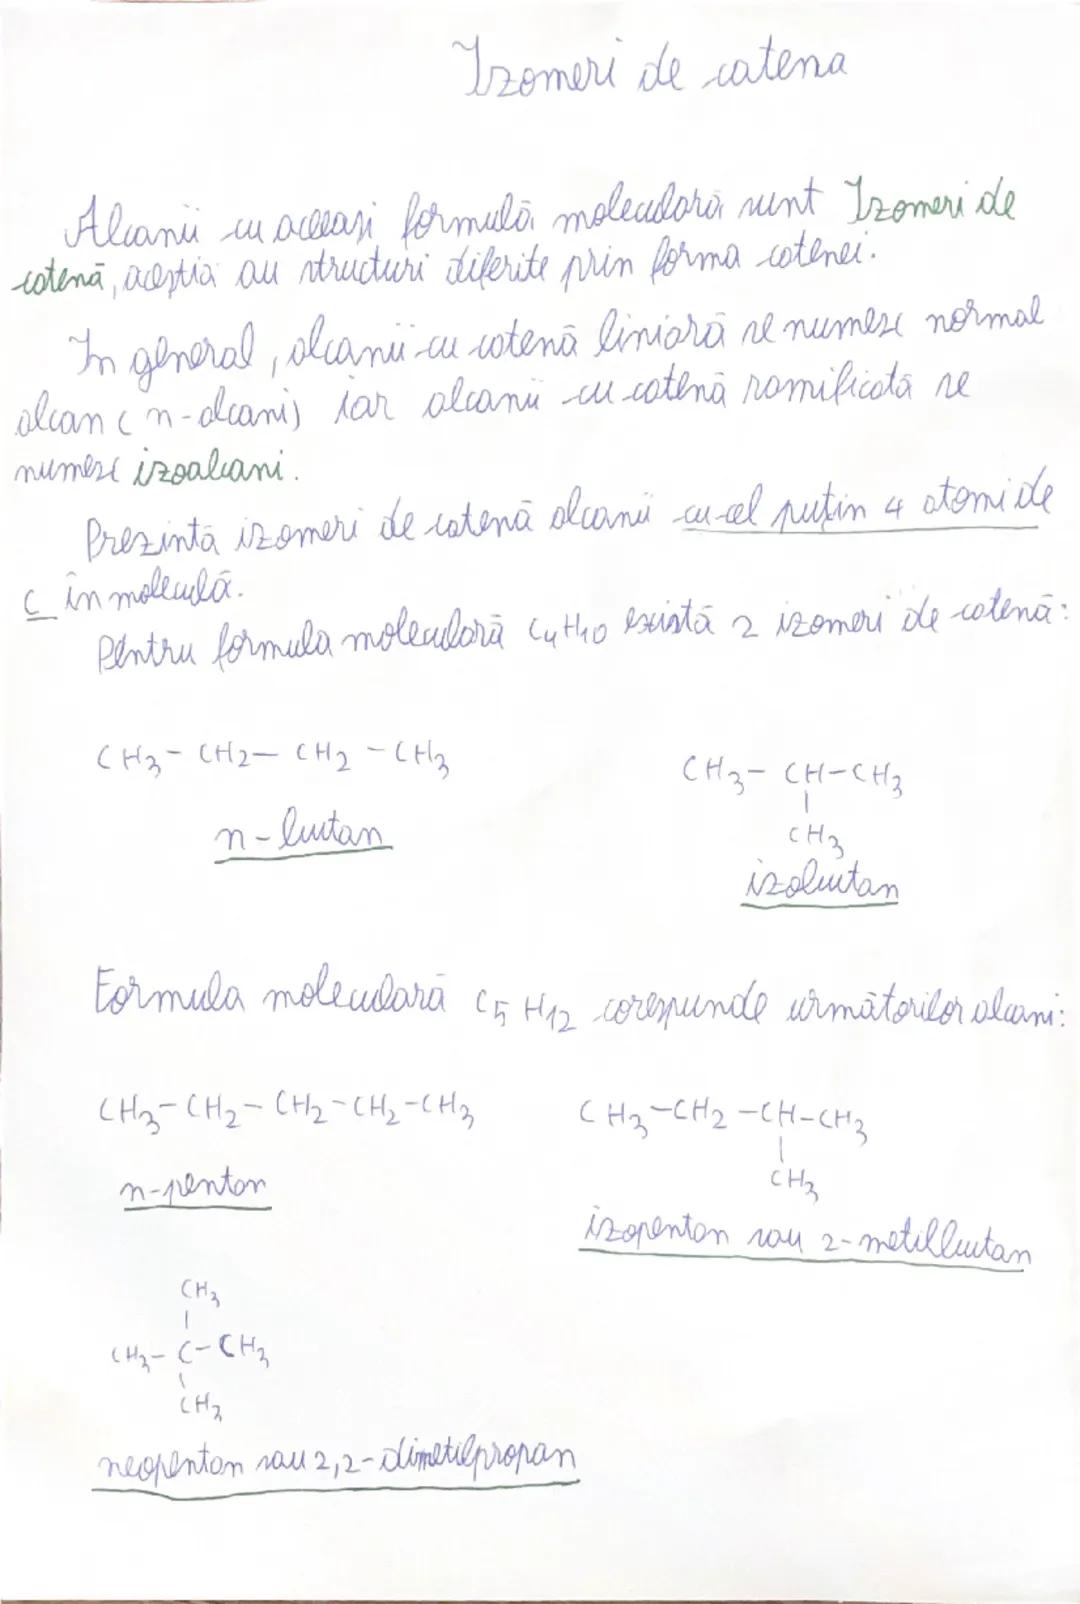 Izomeri de catena
Alcanii cu aceeași formulă moleculară sunt Izomeri de
catenă, aceștia au structuri diferite prin forma catenei.
In general, alcanii cu catenă liniară se numesc normal
alcan (n-alcani) iar alcanii cu catenă ramificată se
numesc izoalcani.
Prezintă izomeri de catenă alcanii cu cel puțin 4 atomi de
C în moleculă.
Pentru formula moleculară C4H10 există 2 izomeri de catenă:
CH3-CH2-CH2-CH3
n-butan
CH3-CH-CH3
|
CH3
izobutan
Formula moleculară C5H12 corespunde următorilor alcani:
CH3-CH2-CH2-CH2-CH3
n-pentan
CH3-CH2-CH-CH3
|
CH3
izopentan sau 2-metilbutan
CH3
|
CH3-C-CH3
|
CH3
neopentan sau 2,2-dimetilpropan